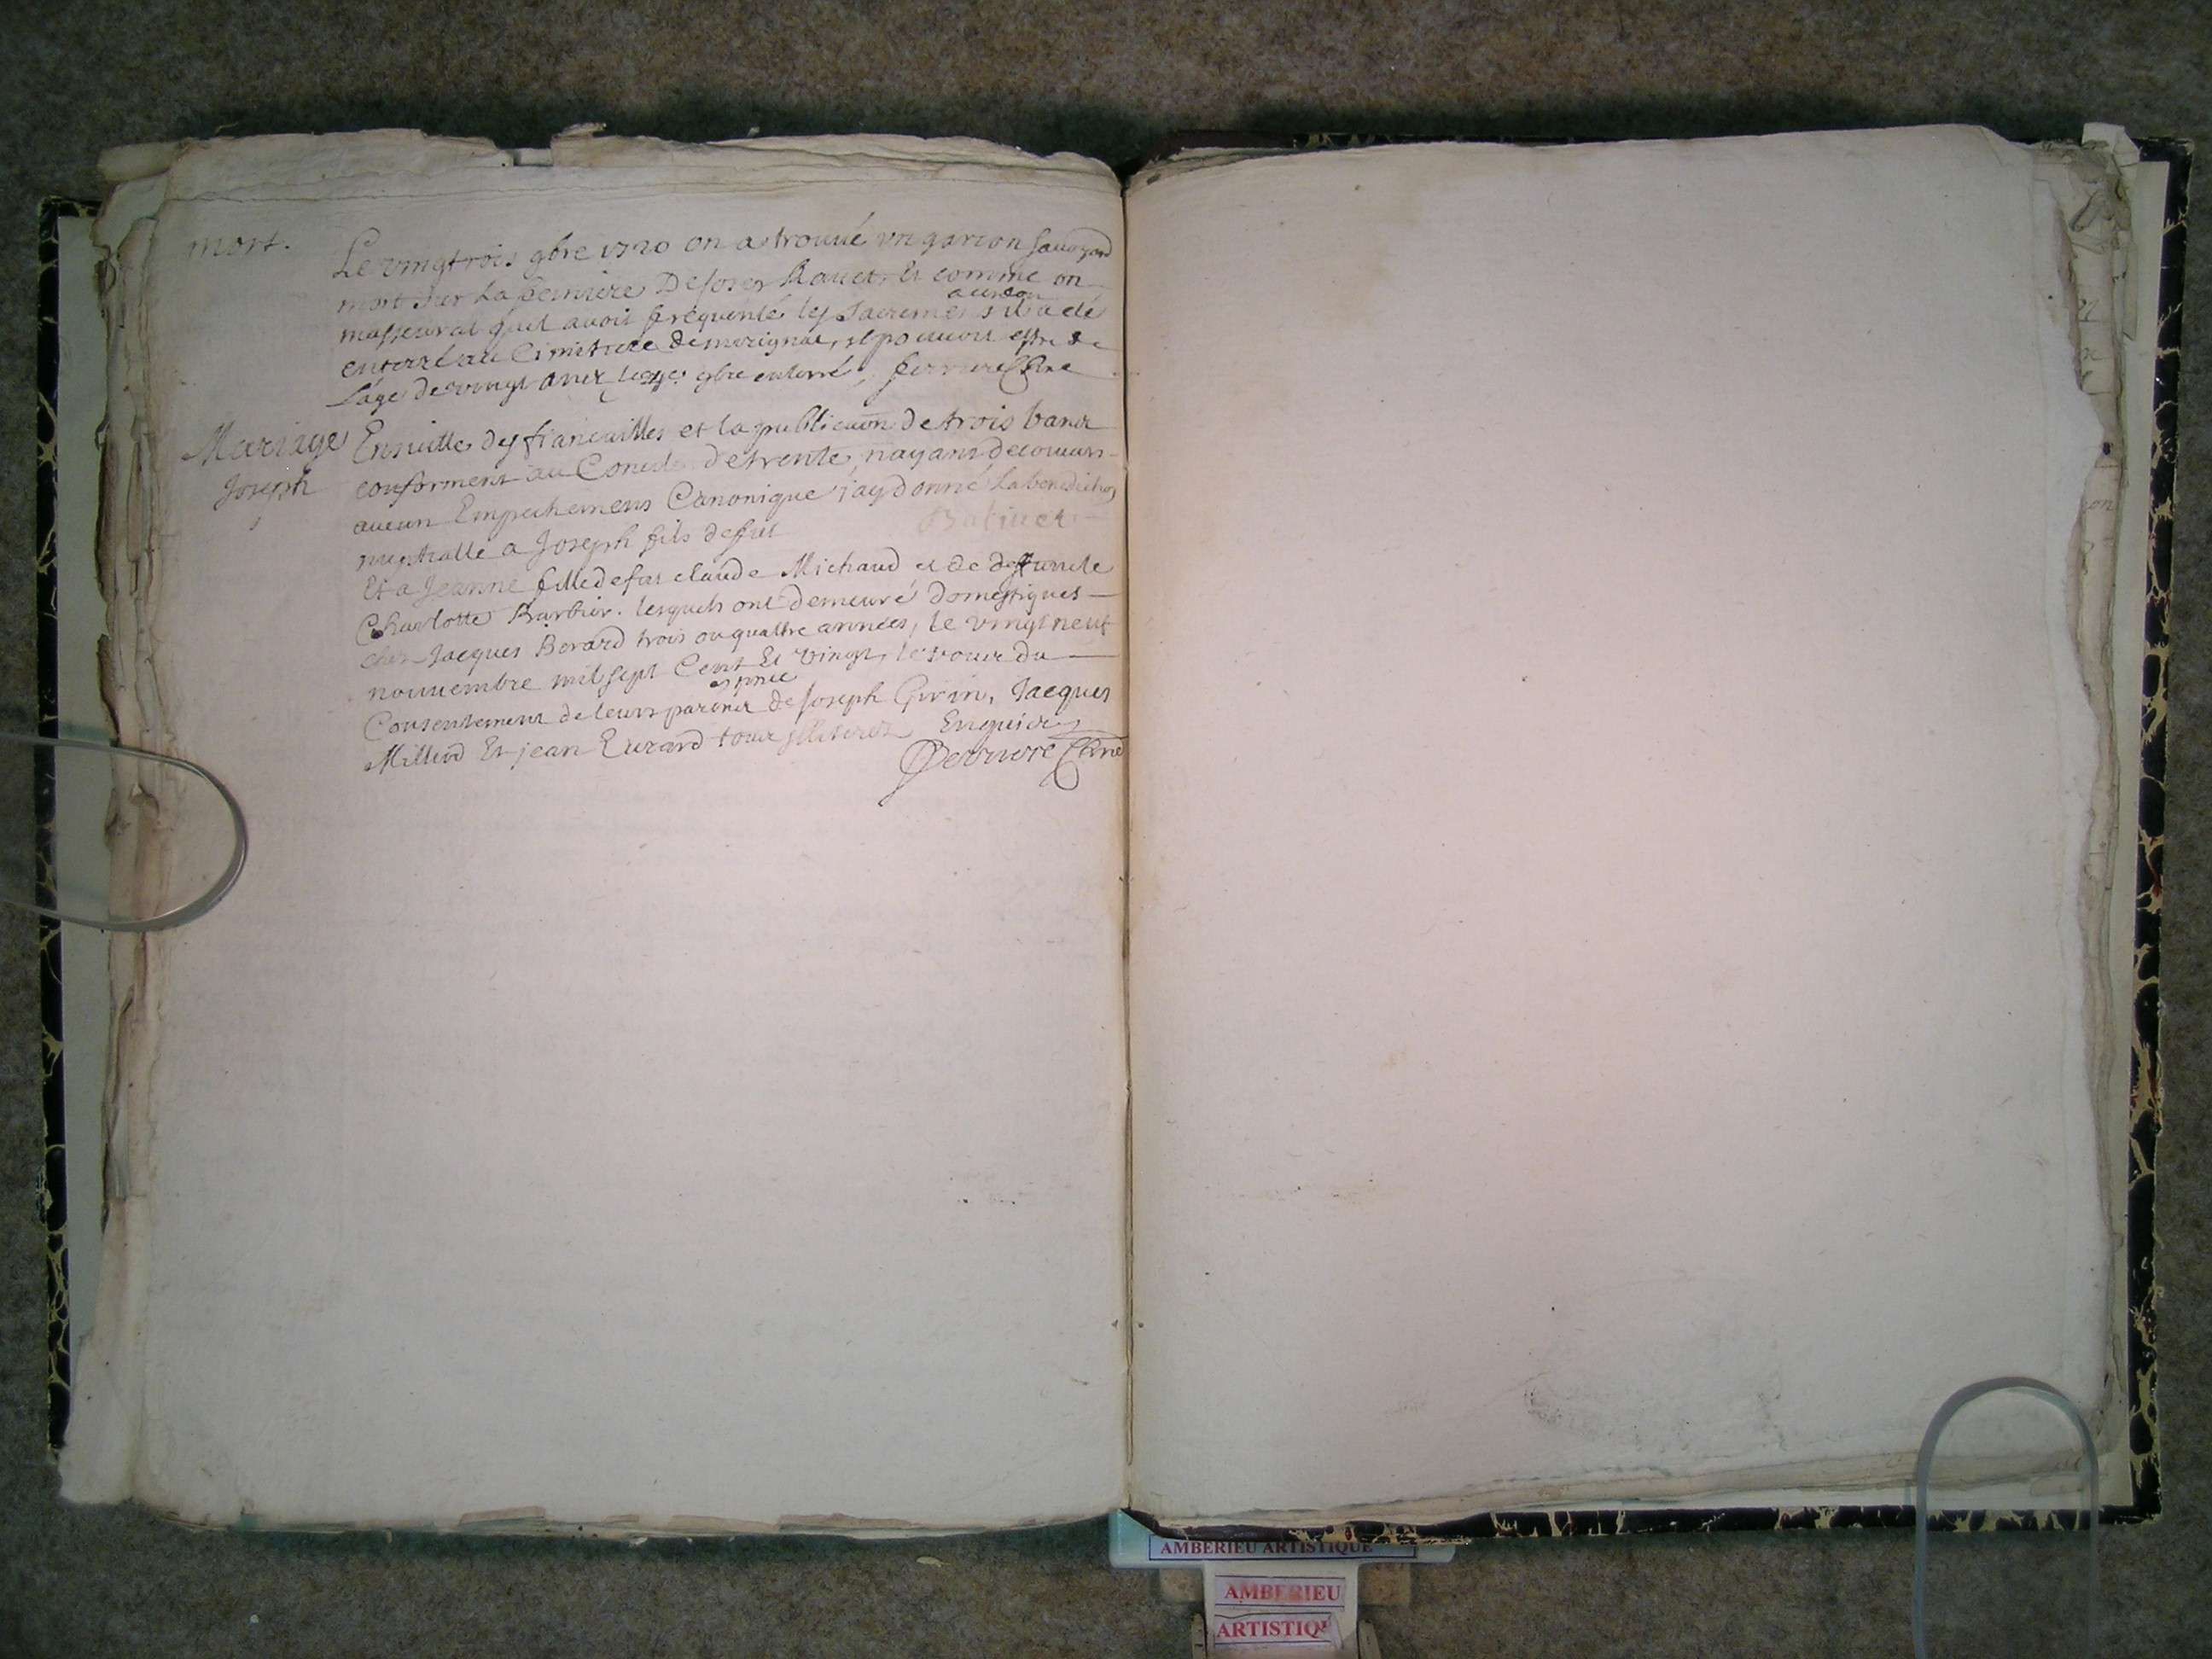 mort.
Le vingtrois 9bre 1720 on a trouué vn garcon sauoyard
mort sur la Et comme on
aerdon
massurat quil auoit frequenté les Sacremens il a eté
enterré au Cimetiere de merignac, il pouuoit estre de
L'age de vingt ans 9bre enterré, ferriere
Mariage
Joseph
Ensuitte des fiancailles et la publicaon de trois bans
conforment au Concile de trente, nayant decouuert
aucun Empechemens Canonique j'ay donné la benediction
nuptialle a Joseph fils de fut
Et a Jeanne fille de fut claude Michaud et de deffuncte
Charlotte Barbier. lesquels ont demeuré domestiques
ches Jacques Berard trois ou quattre années, le vingt neuf
nouuembre mil sept Cent Et vingt, le tout du
Consentement de leurs parens de Joseph Givin, Jacques
Milliod Et jean Eurard tous illiteres Enquis
Ferriere
AMBERIEU ARTISTIQUE
AMBERIEU
ARTISTIQU